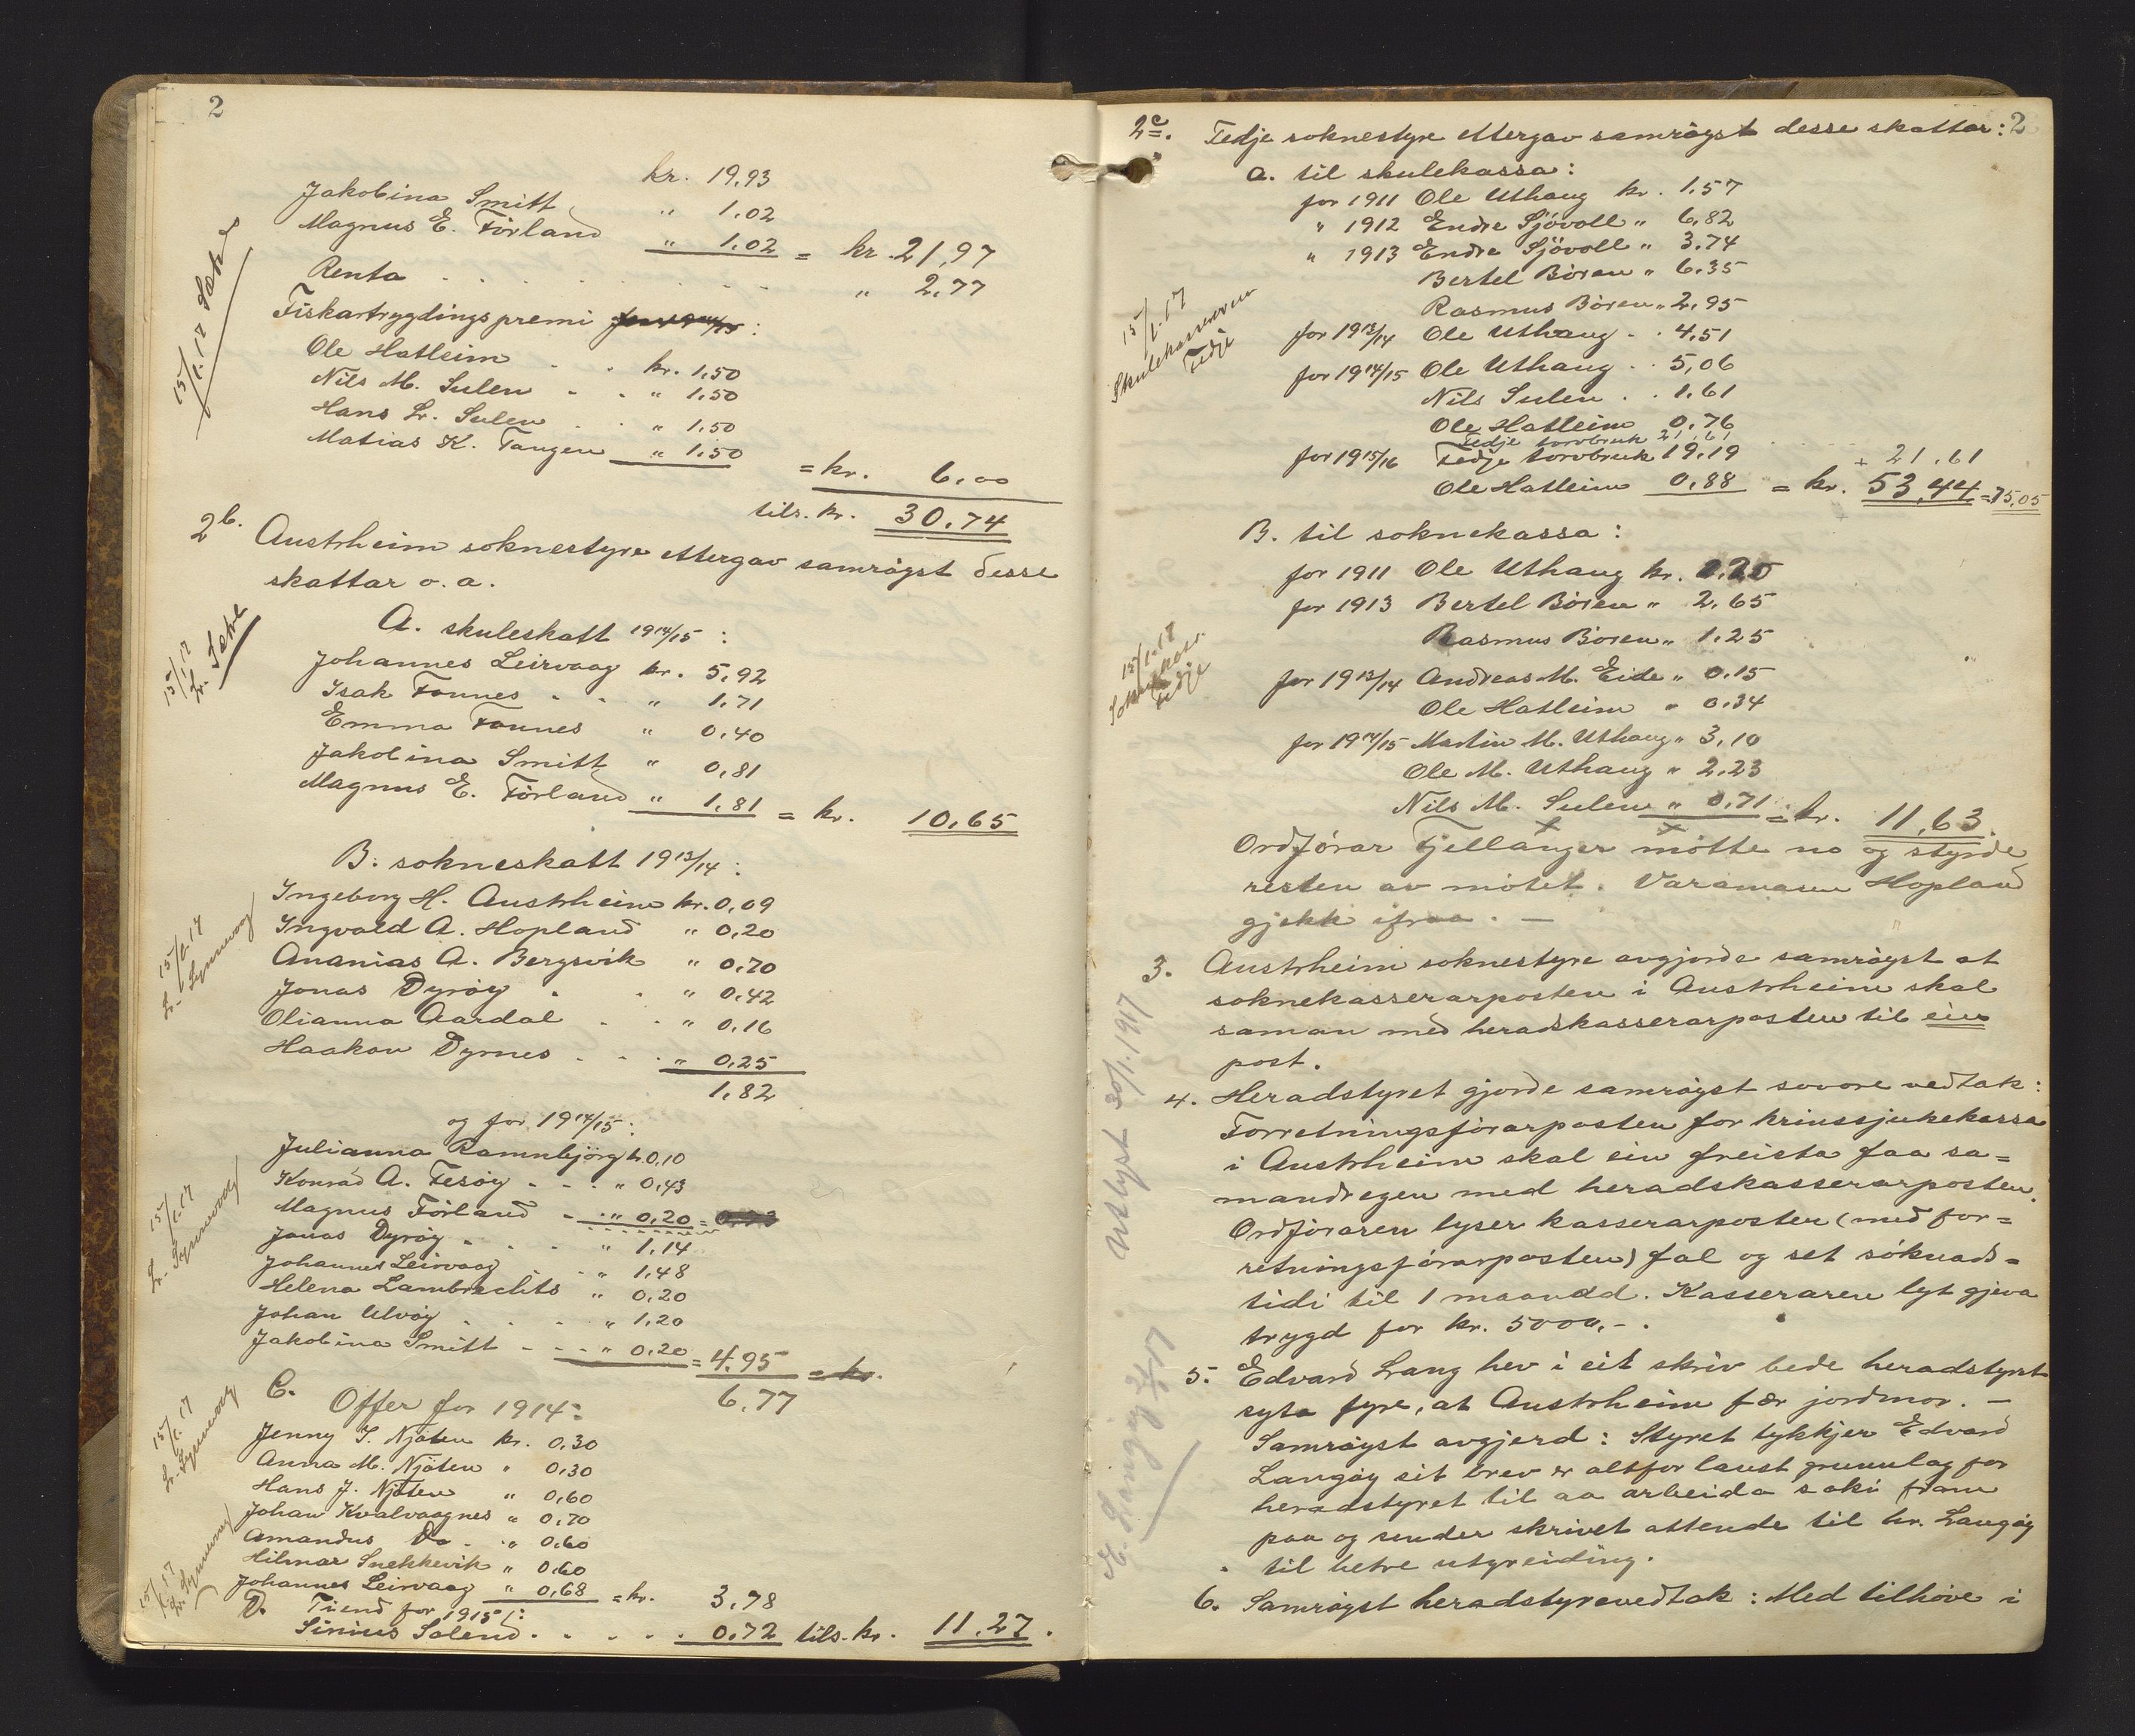 2
kr. 19,93
Jakobina Smitt " 1,02
Magnus E. Förland " 1,02 = kr. 21,97
Renta . . . . . . . " 2,77
Fiskartrygdingspremi for 1914/15 :
Ole Hatleim . . kr. 1,50
Nils M. Sulen . . " 1,50
Hans Lr. Sulen . . " 1,50
Matias K. Tangen " 1,50 = kr. 6,00
tils. kr. 30,74
15/1.17
2b. Austrheim soknestyre ettergav samröyst desse
skattar o. a.
A. skuleskatt 1914/15 :
Johannes Leirvaag kr. 5,92
Isak Fonnes . . " 1,71
Emma Fonnes " 0,40
Jakobina Smitt " 0,81
Magnus E. Förland " 1,81 = kr. 10,65
15/1.17
B. sokneskatt 1913/14 :
Ingeborg H. Austrheim kr. 0,09
Ingvald A. Hopland " 0,20
Ananias A. Bergsvik " 0,70
Jonas Dyröy . . " 0,42
Olianna Aardal . . " 0,16
Haakon Dyrnes . . . " 0,25
1,82
15/1.17
og for 1914/15 :
Julianna Ramnbjörg k. 0,10
Konrad A. Fesöy . . . " 0,43
Magnus Förland . . " 0,20 =
Jonas Dyröy . . . " 1,14
Johannes Leirvaag . " 1,48
Helena Lambrechts " 0,20
Johan Ulvöy . . . " 1,20
Jakobina Smitt - - - " 0,20 = 4,95 = kr.
6,77
15/1.17
C. Offer for 1914 :
Jenny I. Njöten kr. 0,30
Anna M. Njöten " 0,30
Hans J. Njöten " 0,60
Johan Kvalvaagnes " 0,70
Amandus Do . . " 0,60
Hilmar Snekkevik " 0,60
Johannes Leirvaag " 0,68 = kr. 3,78
15/1.17
D. Tiend for 1915 :
Sinius Solend . . . . . 0,72 tils. kr. 11,27.
15/1.17
2
2c. Fedje soknestyre ettergav samröyst desse skattar :
a. til skulekassa :
for 1911 Ole Uthaug kr. 1,57
" 1912 Endre Sjövoll " 6,82
" 1913 Endre Sjövoll " 3,74
Bertel Bören " 6,35
Rasmus Bören " 2,95
for 1913/14 Ole Uthaug . . 4,51
for 1914/15 Ole Uthaug . . 5,06
Nils Sulen . . 1,61
Ole Hatleim 0,76
Fedje torvbruk 21,61
for 1915/16 Fedje torvbruk 19,19 + 21,61
Ole Hatleim 0,88 = kr. 53,44 = 75,05
15/1.17
Skulekasseraren
Fedje
B. til soknekassa :
for 1911 Ole Uthaug kr. 1,20
for 1913 Bertel Bören " 2,65
Rasmus Bören " 1,25
for 1913/14 Andreas M. Eide " 0,15
Ole Hatleim " 0,34
for 1914/15 Martin M. Uthaug " 3,10
Ole M. Uthaug " 2,23
Nils M. Sulen " 0,71 = kr. 11,63.
15/1.17
Fedje
Ordförar Fjellanger mötte no og styrde
resten av mötet. Varamann Hopland
gjekk ifraa. —
3. Austrheim soknestyre avgjorde samröyst at
soknekasserarposten i Austrheim skal
saman med heradskasserarposten til ein
post.
4. Heradstyret gjorde samröyst sovore vedtak :
Forretningsförarposten for krinssjukekassa
i Austrheim skal ein freista faa sa=
mandregen med heradskasserarposten.
Ordföraren lyser kasserarposten (med for=
retningsförarposten) fal og set söknads=
tidi til 1 maanad. Kasseraren lyt gjeva
trygd for kr. 5000,-.
Utlyst 30/1.1917
5. Edvard Lang hev i eit skriv bede heradstyret
syta fyre, at Austrheim fær jordmor. —
Samröyst avgjerd : Styret tykkjer Edvard
Langöy sit brev er altfor laust grunnlag for
heradstyret til aa arbeida saki fram
paa og sender skrivet attende til hr. Langöy
til betre utgreiding.
6. Samröyst heradstyrevedtak : Med tilhöve i